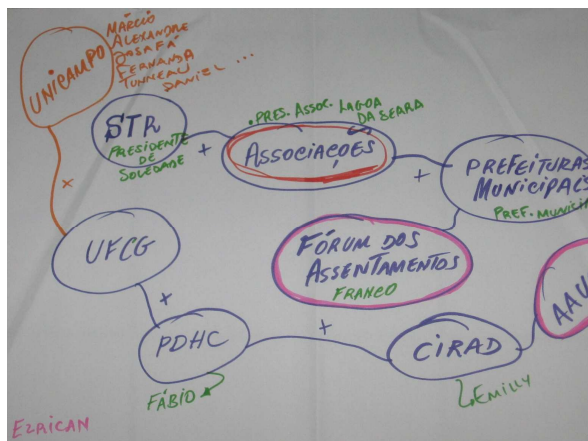 UNICAMPO
MÁRCIO
ALEXANDRE
FERNANDA
DANIEL ...
STR
PRESIDENTE
DE
SOLEDADE
+
.PRES. ASSOC. LAGOA
DA SEARA
ASSOCIAÇOES
+
PREFEITURAS
MUNICIPAIS
PREF. MUNICIP
x
UFCG
FÓRUM DOS
ASSENTAMENTOS
FRANCO
+
PDHC
+
CIRAD
AAU
FÁBIO
EMILLY
EZRICAN